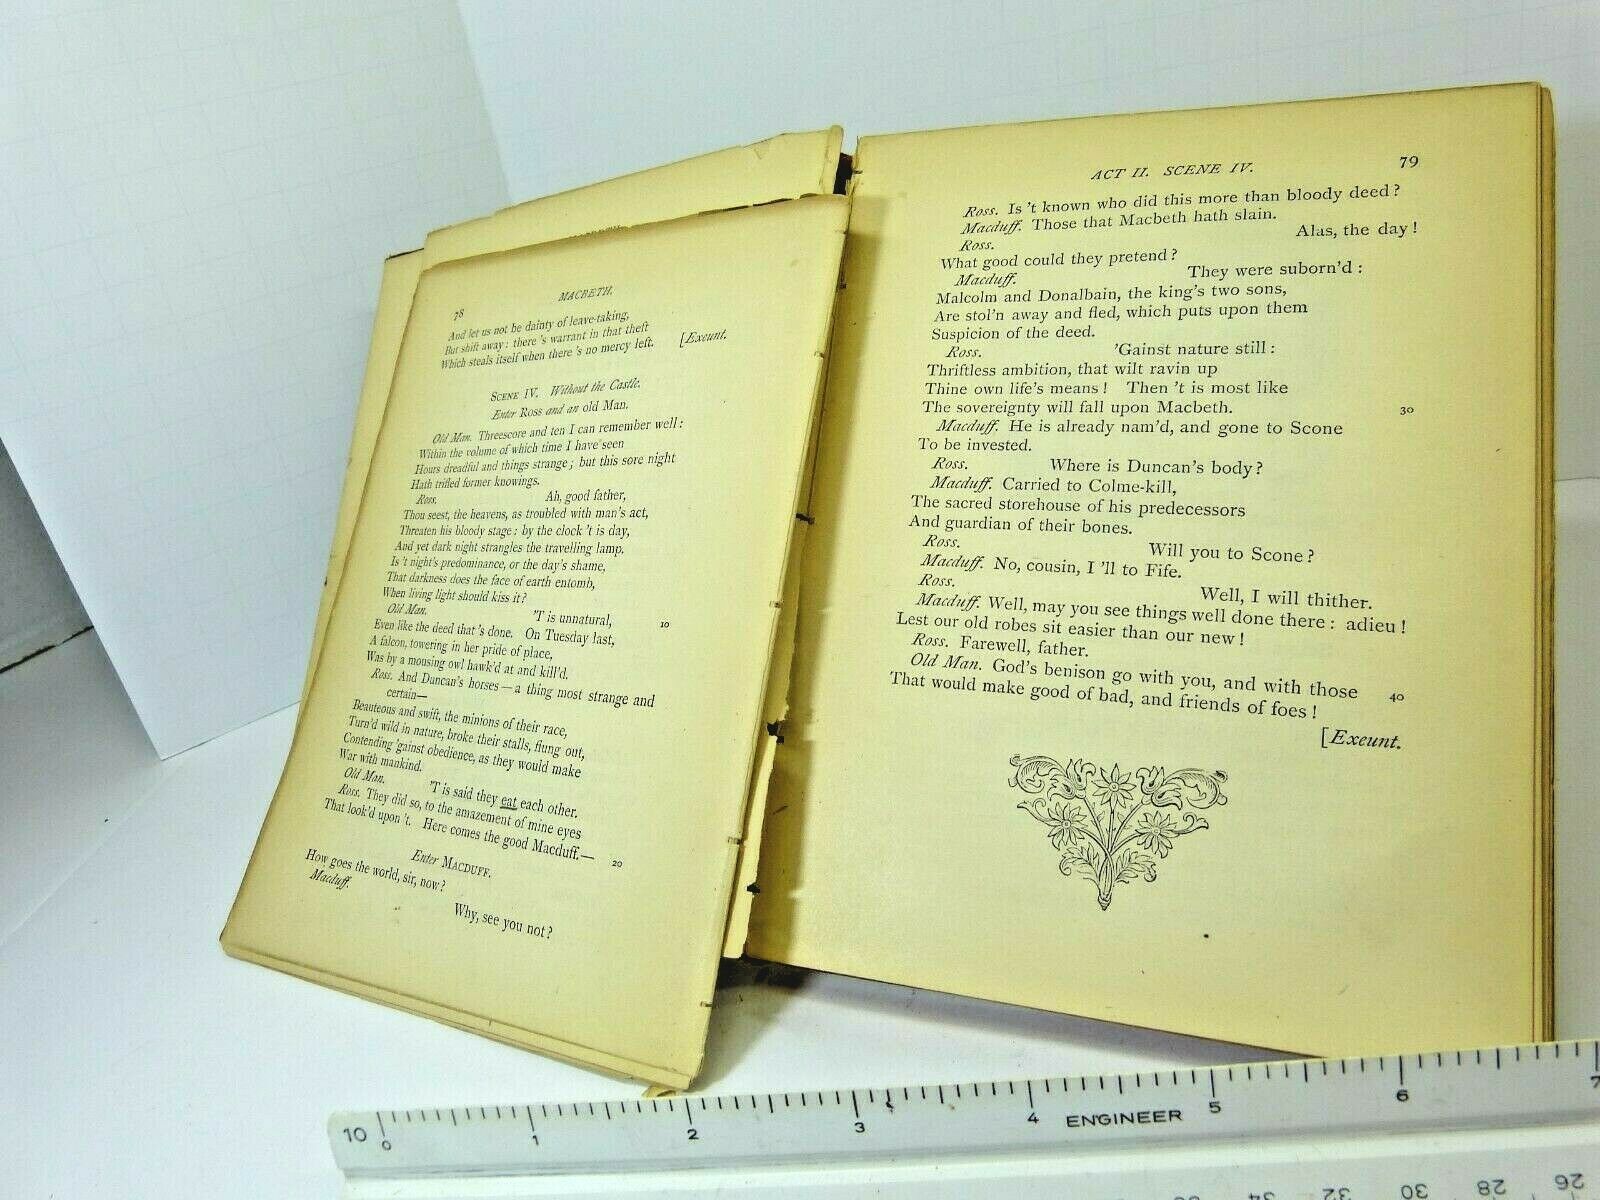 78
MACBETH.
And let us not be dainty of leave-taking,
But shift away: there 's warrant in that theft
Which steals itself when there 's no mercy left. [Exeunt.
SCENE IV. Without the Castle.
Enter ROSS and an old Man.
Old Man. Threescore and ten I can remember well:
Within the volume of which time I have seen
Hours dreadful and things strange; but this sore night
Hath trifled former knowings.
Ross. Ah, good father,
Thou seest, the heavens, as troubled with man's act,
Threaten his bloody stage: by the clock 't is day,
And yet dark night strangles the travelling lamp.
Is 't night's predominance, or the day's shame,
That darkness does the face of earth entomb,
When living light should kiss it?
Old Man. 'T is unnatural, 10
Even like the deed that 's done. On Tuesday last,
A falcon, towering in her pride of place,
Was by a mousing owl hawk'd at and kill'd.
Ross. And Duncan's horses—a thing most strange and
certain—
Beauteous and swift, the minions of their race,
Turn'd wild in nature, broke their stalls, flung out,
Contending 'gainst obedience, as they would make
War with mankind.
Old Man. 'T is said they eat each other.
Ross. They did so, to the amazement of mine eyes
That look'd upon 't. Here comes the good Macduff.— 20
Enter MACDUFF.
How goes the world, sir, now?
Macduff. Why, see you not?
ACT II. SCENE IV. 79
Ross. Is 't known who did this more than bloody deed?
Macduff. Those that Macbeth hath slain.
Ross. Alas, the day!
What good could they pretend?
Macduff. They were suborn'd:
Malcolm and Donalbain, the king's two sons,
Are stol'n away and fled, which puts upon them
Suspicion of the deed.
Ross. 'Gainst nature still:
Thriftless ambition, that wilt ravin up
Thine own life's means! Then 't is most like
The sovereignty will fall upon Macbeth. 30
Macduff. He is already nam'd, and gone to Scone
To be invested.
Ross. Where is Duncan's body?
Macduff. Carried to Colme-kill,
The sacred storehouse of his predecessors
And guardian of their bones.
Ross. Will you to Scone?
Macduff. No, cousin, I 'll to Fife.
Ross. Well, I will thither.
Macduff. Well, may you see things well done there: adieu!
Lest our old robes sit easier than our new!
Ross. Farewell, father.
Old Man. God's benison go with you, and with those 40
That would make good of bad, and friends of foes!
[Exeunt.
10 0 1 2 3 4 ENGINEER 5 6 7
34 32 30 28 26